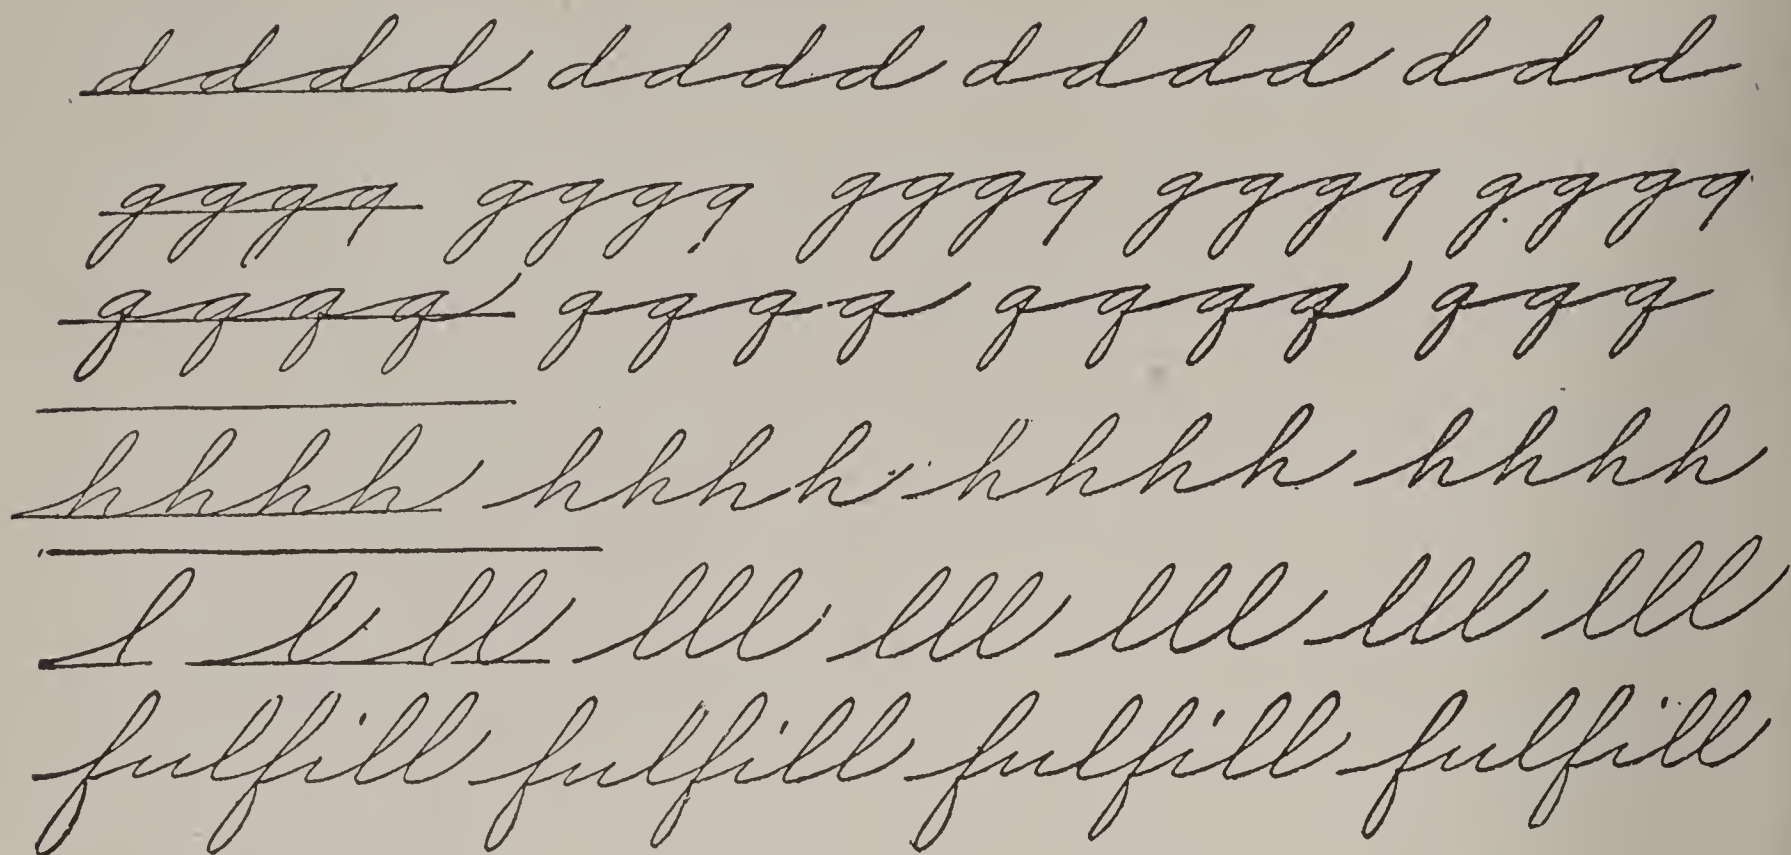 dddd dddd dddd ddd
gggg gggg gggg gggg gggg
qqqq qqqq qqqq qqq
hhhh hhhh hhhh hhhh
l lll lll lll lll lll lll
fulfill fulfill fulfill fulfill